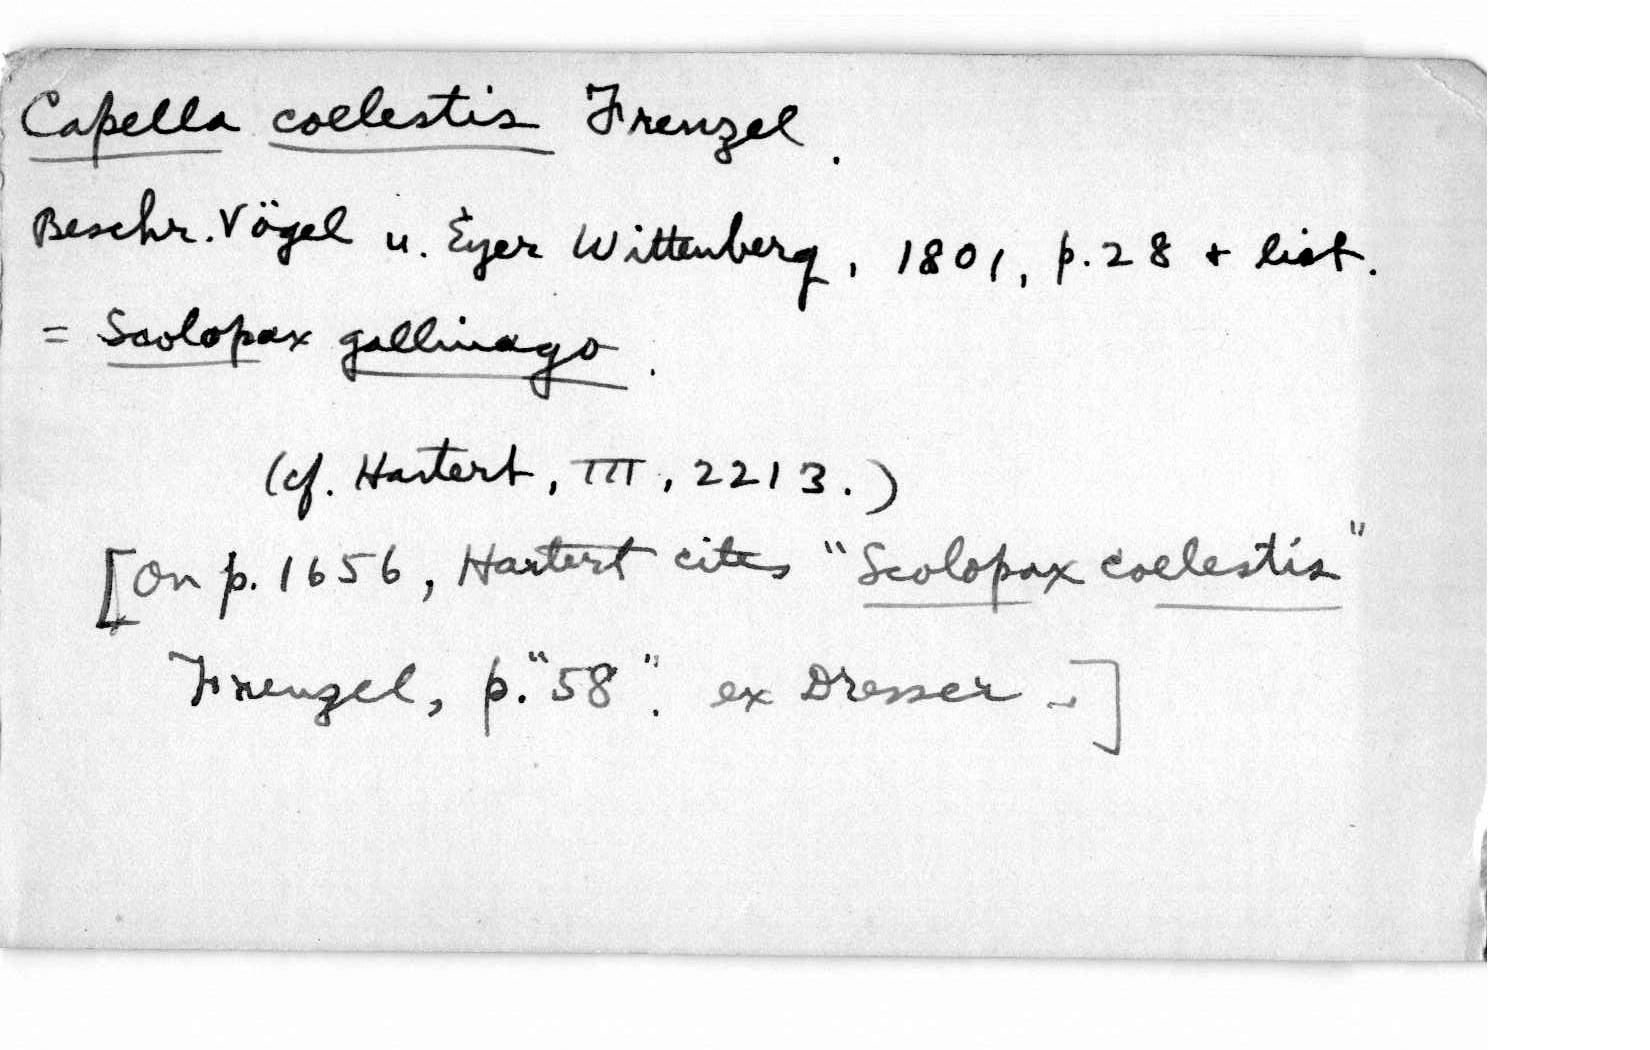 Capella coelestis Frenzel.
Beschr. Vögel u. Eyer Wittenberg, 1801, p. 28 + list.
= Scolopax gallinago.
(cf. Hartert, III, 2213.)
[On p. 1656, Hartert cites "Scolopax coelestis"
Frenzel, p. "58". ex Dresser.]